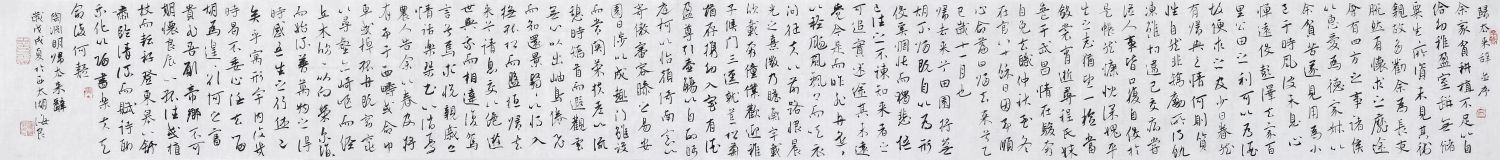 歸去來辭 並序
余家貧耕植不足以自
給幼稚盈室缾無儲
粟生生所資未見其術
親故多勸余為長吏
脫然有懷求之靡途
會有四方之事諸侯
以惠愛為德家叔以
余貧苦遂見用為小
邑于時風波未靜心
憚遠役彭澤去家百
里公田之利可以為酒
故便求之及少日眷然
有歸歟之情何則質
性自然非矯勵所得飢
凍雖切違己交病嘗
從人事皆口腹自役於
是悵然慷慨深愧平
生之志猶望一稔當
斂裳宵逝尋程氏妹
喪于武昌情在駿奔
自免去職仲秋至冬
在官八十餘日因事順
心命篇曰歸去來兮乙
巳歲十一月也
歸去來兮田園將蕪
胡不歸既自以心為形
役奚惆悵而獨悲悟
已往之不諫知來者之
可追實迷途其未遠
覺今是而昨非舟遙遙
以輕颺風飄飄而吹衣
問征夫以前路恨晨
光之熹微乃瞻衡宇載
欣載奔僮僕歡迎稚
子候門三逕就荒松菊
猶存攜幼入室有酒
盈尊引壺觴以自酌眄
庭柯以怡顏倚南窗以
寄傲審容膝之易安
園日涉以成趣門雖設
而常關策扶老以流
憩時矯首而遐觀雲
無心以出岫鳥倦飛
而知還景翳翳以將入
撫孤松而盤桓歸去
來兮請息交以絕遊
世與我而相違復駕
言兮焉求悅親戚之
情話樂琴書以消憂
農人告余以春及將
有事于西疇或命巾
車或棹孤舟既窈窕
以尋壑亦崎嶇而經
丘木欣欣以向榮泉涓涓
而始流善萬物之得
時感吾生之行休已
矣乎寓形宇內復幾
時曷不委心任去留
胡為遑遑兮欲何之富
貴非吾願帝鄉不可
期懷良辰以孤往或植
杖而耘耔登東皋以舒
嘯臨清流而賦詩聊
乘化以歸盡樂夫天
命復奚疑
陶淵明歸去來辭
歲戊戌夏於西大